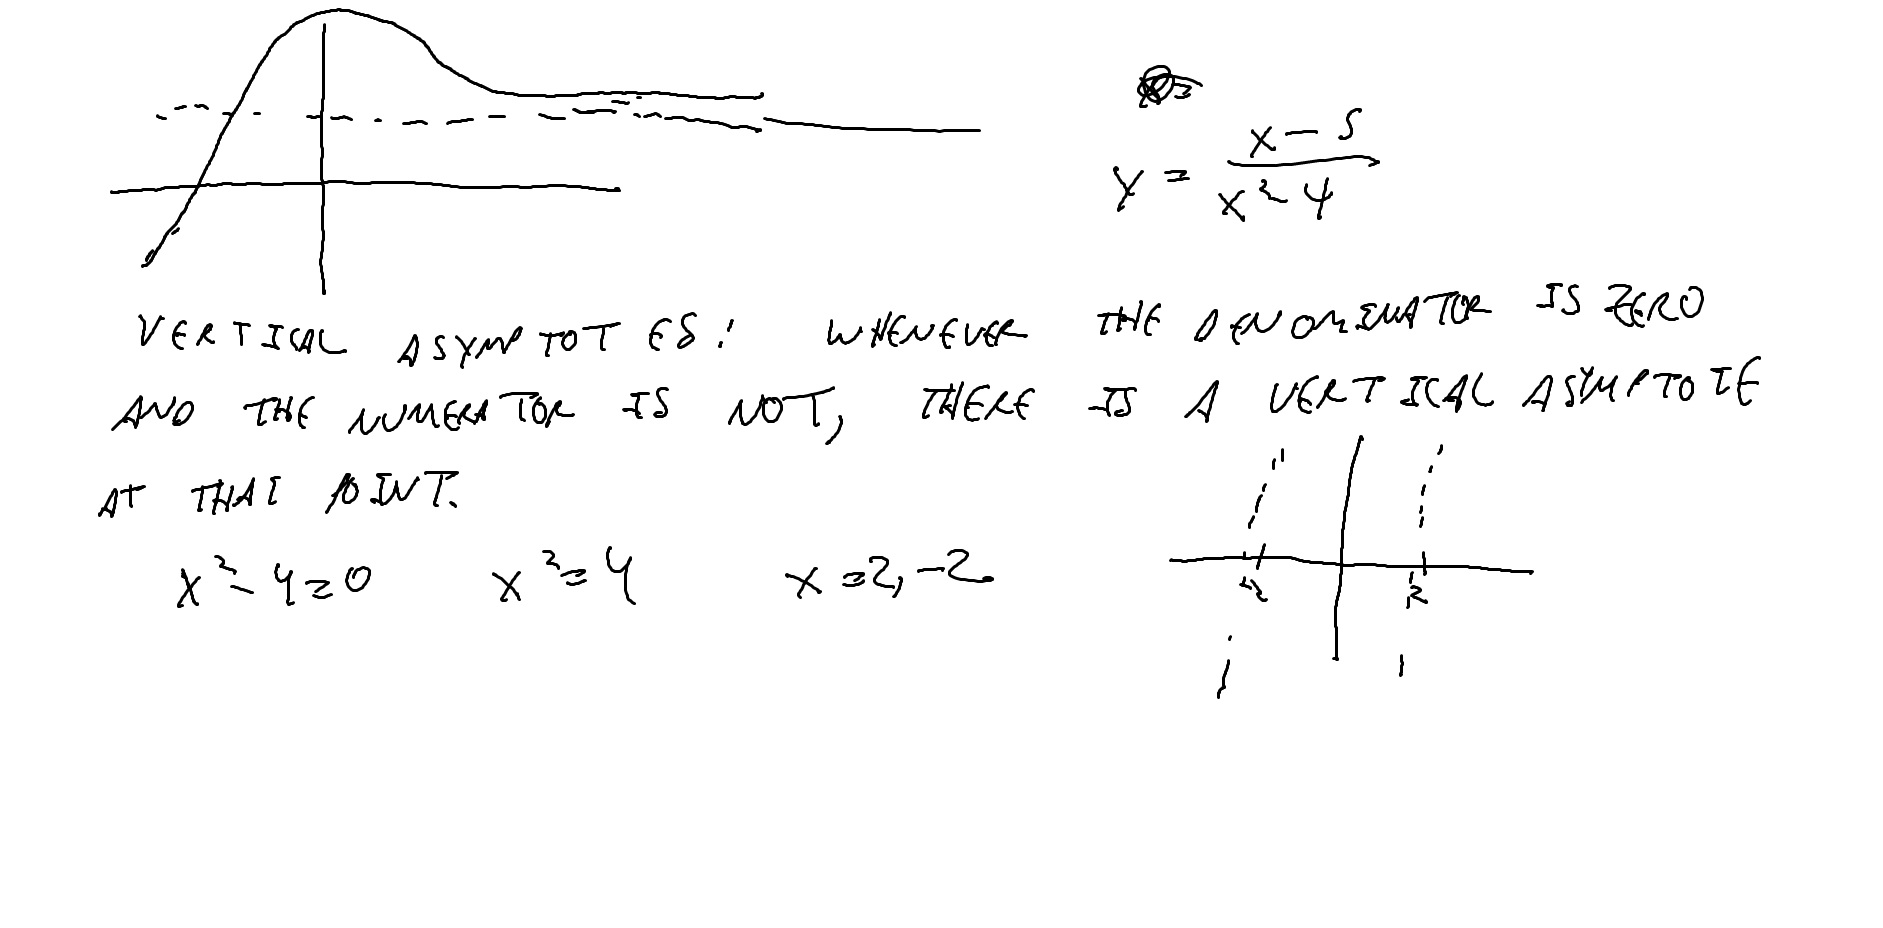 y = x - 5
x² - 4
VERTICAL ASYMPTOTES: WHENEVER THE DENOMINATOR IS ZERO
AND THE NUMERATOR IS NOT, THERE IS A VERTICAL ASYMPTOTE
AT THAT POINT.
x² - 4 = 0 x² = 4 x = 2, -2
-2 2